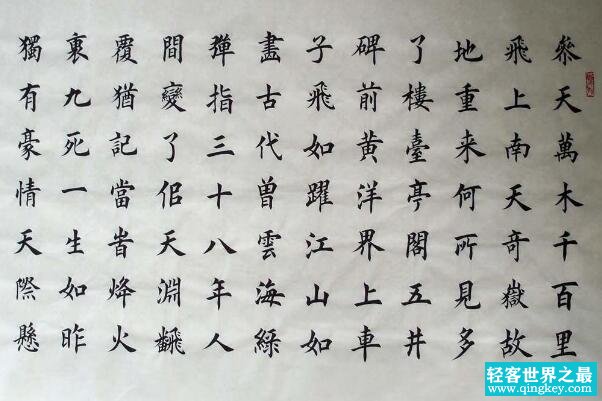 叅天萬木千百里
飛上南天奇嶽故
地重来何所見多
了樓臺亭閣五井
碑前黄洋界上車
子飛如躍江山如
畫古代曽雲海綠
彈指三十八年人
間變了佀天淵飜
覆猶記當旹烽火
裏九死一生如昨
獨有豪情天際懸
轻客世界之最
www.qingkey.com